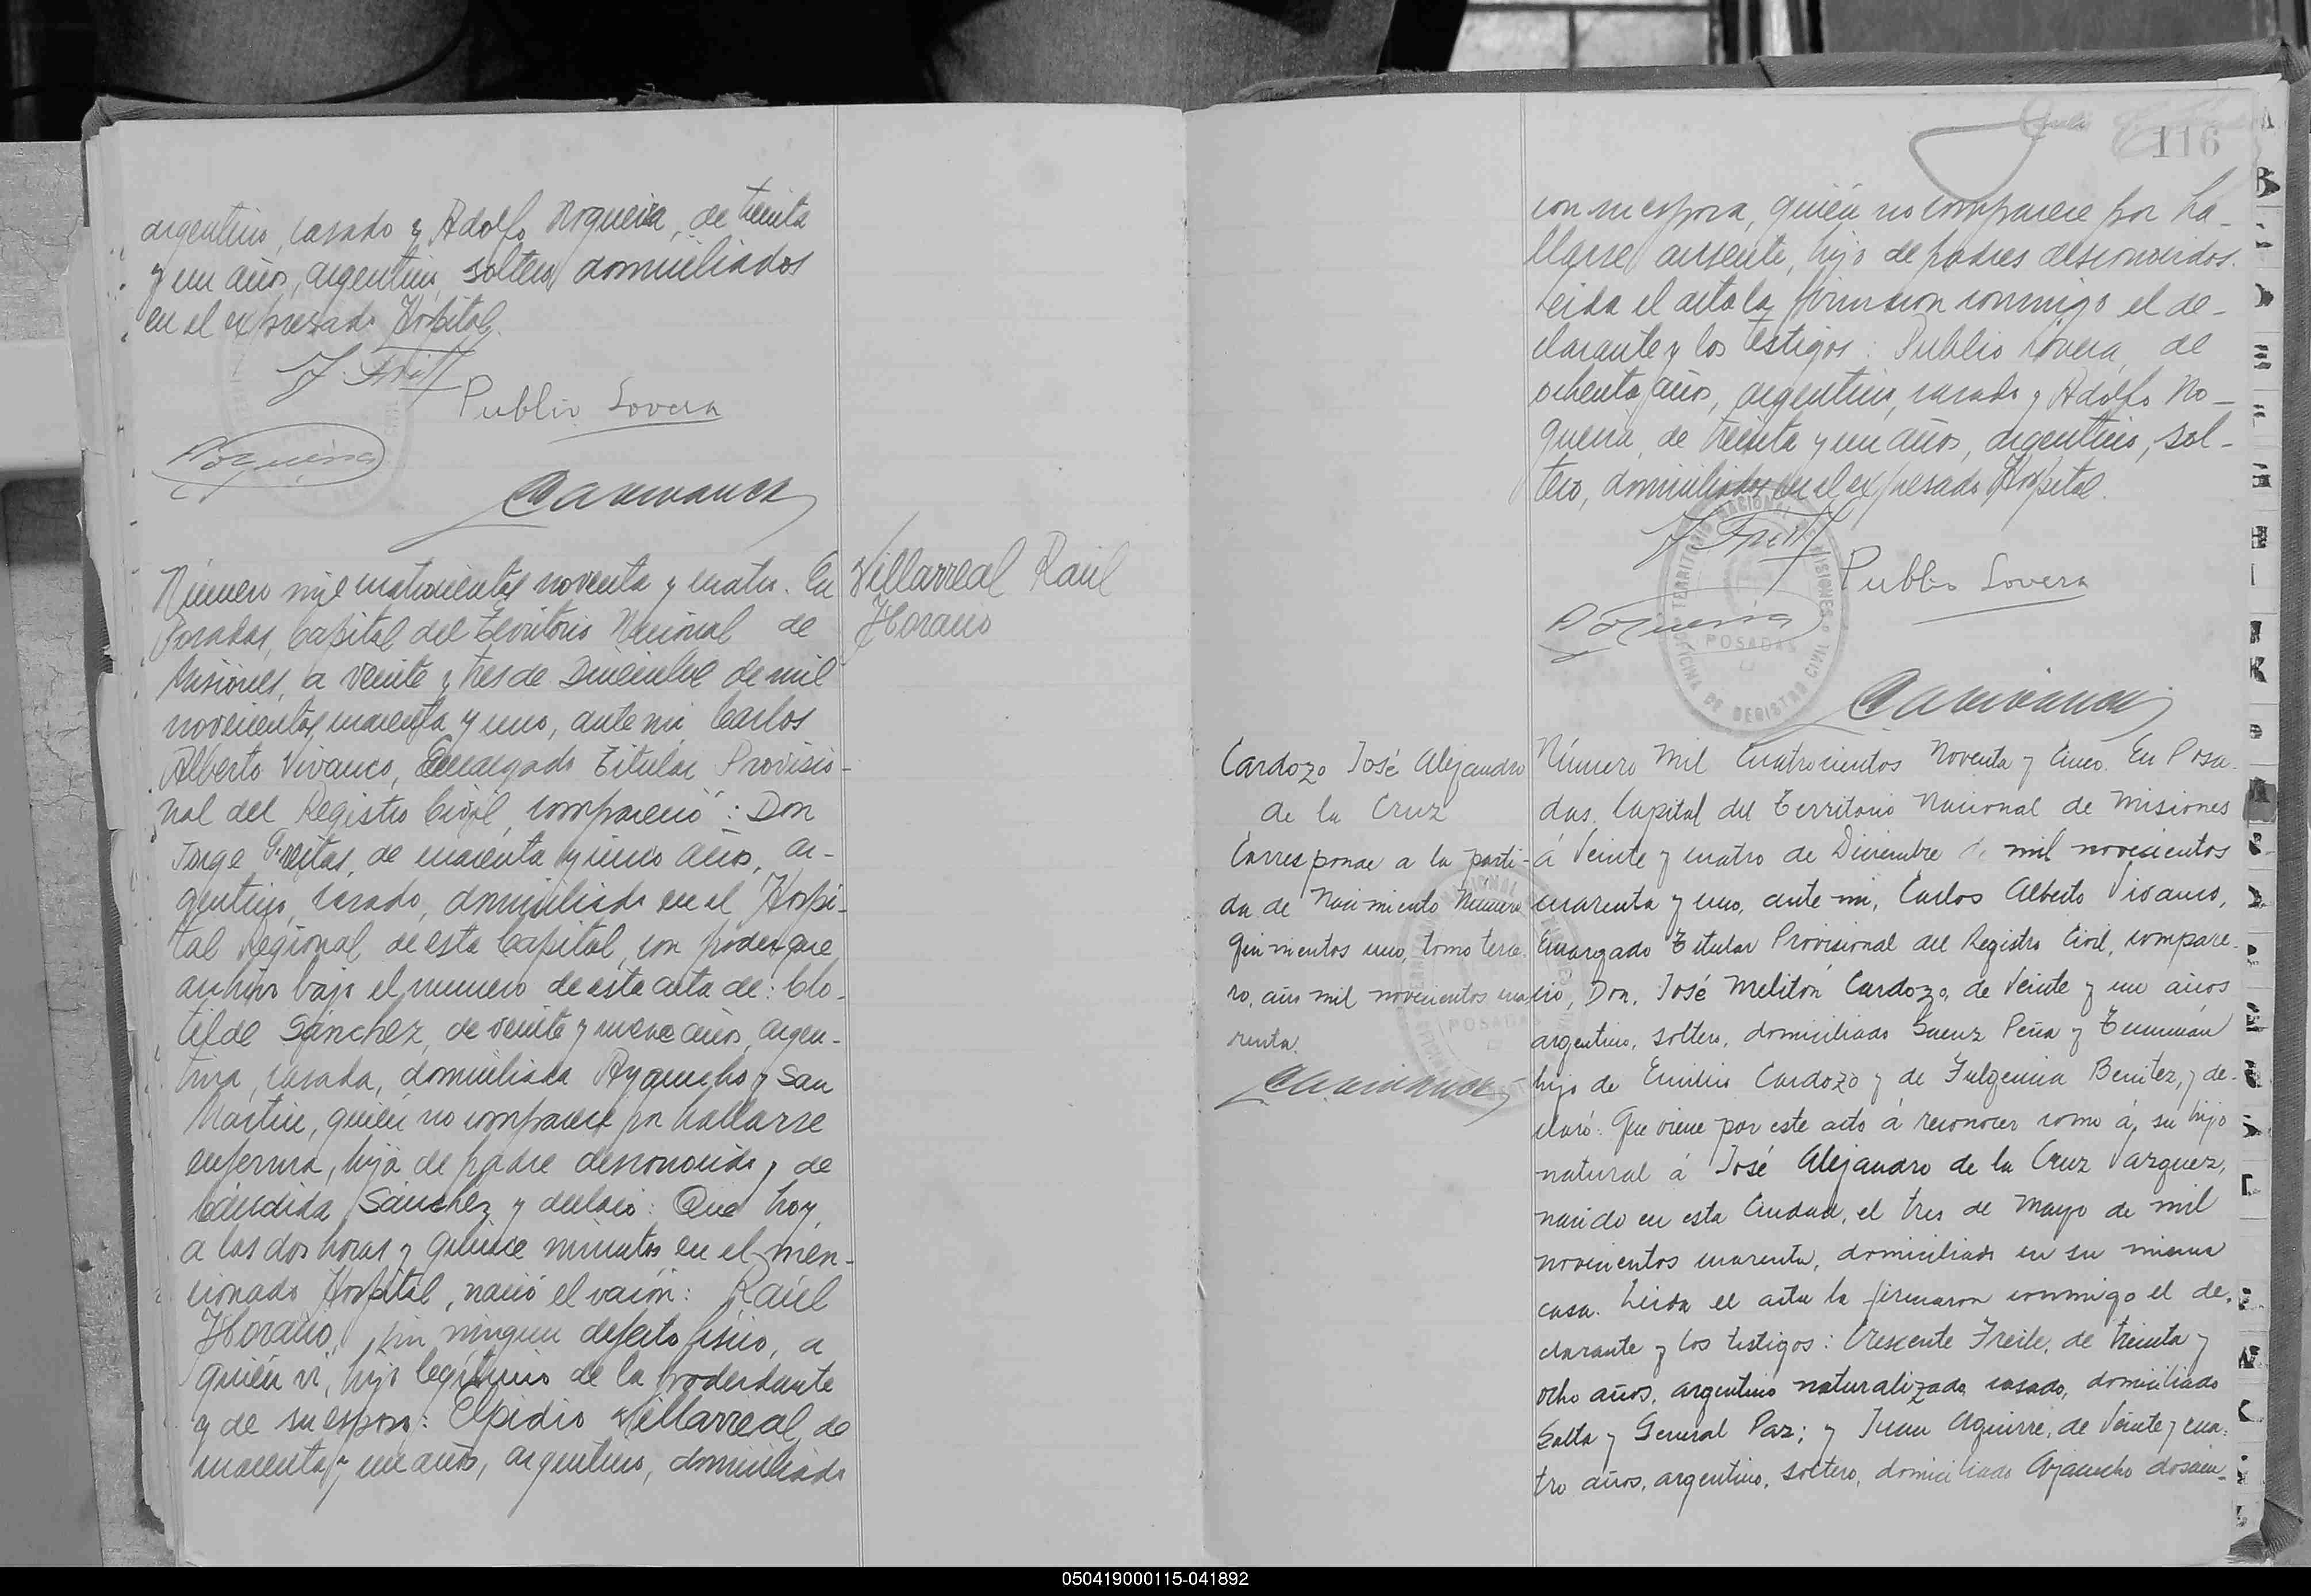 argentino, casado y Adolfo Noguera, de treinta
y un años, argentino, soltero, domiciliados
en el expresado Hospital.
J. Freitas
Publio Lovera
Noguera
CAVivanco
Número mil cuatrocientos noventa y cuatro. En
Posadas, Capital del Territorio Nacional de
Misiones, a veinte y tres de Diciembre de mil
novecientos cuarenta y uno, ante mi Carlos
Alberto Vivanco, Encargado Titular Provisio-
nal del Registro Civil, compareció: Don
Jorge Freitas, de cuarenta y cinco años, ar-
gentino, casado, domiciliado en el Hospi-
tal Regional de esta Capital, con poder que
archivo bajo el numero de esta acta de: Clo-
tilde Sánchez, de veinte y nueve años, argen-
tina, casada, domiciliada Ayacucho y San
Martin, quién no comparece por hallarse
enferma, hija de padre desconocido y de
Cándida Sánchez y declaró: Que hoy,
a las dos horas y quince minutos en el men-
cionado Hospital, nació el varón: Raúl
Horacio, sin ningun defecto fisico, a
quién vi, hijo legítimo de la poderdante
y de su esposo: Elpidio Villarreal, de
cuarenta y un años, argentino, domiciliado
Villarreal Raúl
Horacio
116
con su esposa, quién no comparece por ha-
llarse ausente, hijo de padres desconocidos.
Leida el acta la firmaron conmigo el de-
clarante y los testigos: Publio Lovera, de
ochenta años, argentino, casado y Adolfo No-
guera, de treinta y un años, argentino, sol-
tero, domiciliados en el expresado Hospital.
J. Freitas
Publio Lovera
Noguera
CAVivanco
OFICINA DE REGISTRO CIVIL
TERRITORIO NACIONAL MISIONES
POSADAS
Cardozo José Alejandro
de la Cruz
Corresponde a la parti-
da de Nacimiento Número
quinientos uno, tomo terce-
ro, año mil novecientos cua
renta.
CAVivanco
POSADAS
Número mil Cuatrocientos Noventa y Cinco. En Posa-
das, Capital del Territorio Nacional de Misiones
á Veinte y cuatro de Diciembre de mil novecientos
cuarenta y uno, ante mi, Carlos Alberto Vivanco,
Encargado Titular Provisional del Registro Civil, compare-
ció, Don, José Melitón Cardozo, de Veinte y un años
argentino, soltero, domiciliado Saenz Peña y Tucumán
hijo de Emilio Cardozo y de Fulgencia Benitez, y de-
claró: Que viene por este acto á reconocer como á su hijo
natural á José Alejandro de la Cruz Vazquez,
nacido en esta Ciudad, el tres de Mayo de mil
novecientos cuarenta, domiciliado en su misma
casa. Leida el acta la firmaron conmigo el de-
clarante y los testigos: Crescente Freile, de treinta y
ocho años, argentino naturalizado, casado, domiciliado
Salta y General Paz; y Juan Aguirre, de Veinte y cua-
tro años, argentino, soltero, domiciliado Ayacucho doscien-